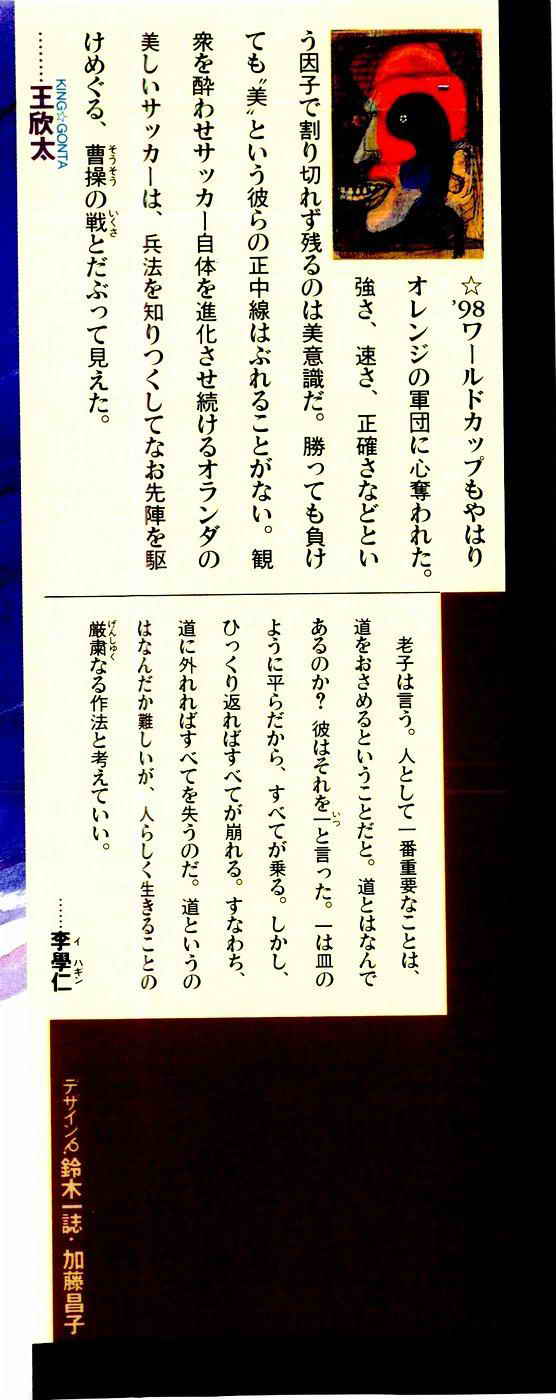 ☆'98ワールドカップもやはり
オレンジの軍団に心奪われた。
強さ、速さ、正確さなどとい
う因子で割り切れず残るのは美意識だ。勝っても負け
ても〝美〟という彼らの正中線はぶれることがない。観
衆を酔わせサッカー自体を進化させ続けるオランダの
美しいサッカーは、兵法を知りつくしてなお先陣を駆
けめぐる、曹操の戦とだぶって見えた。
そうそう
いくさ
KING☆GONTA
………王欣太
老子は言う。人として一番重要なことは、
道をおさめるということだと。道とはなんで
あるのか？ 彼はそれを一と言った。一は皿の
いつ
ように平らだから、すべてが乗る。しかし、
ひっくり返ればすべてが崩れる。すなわち、
道に外れればすべてを失うのだ。道というの
はなんだか難しいが、人らしく生きることの
厳粛なる作法と考えていい。
げんしゅく
……李學仁
イ ハギン
デザイン 鈴木一誌・加藤昌子